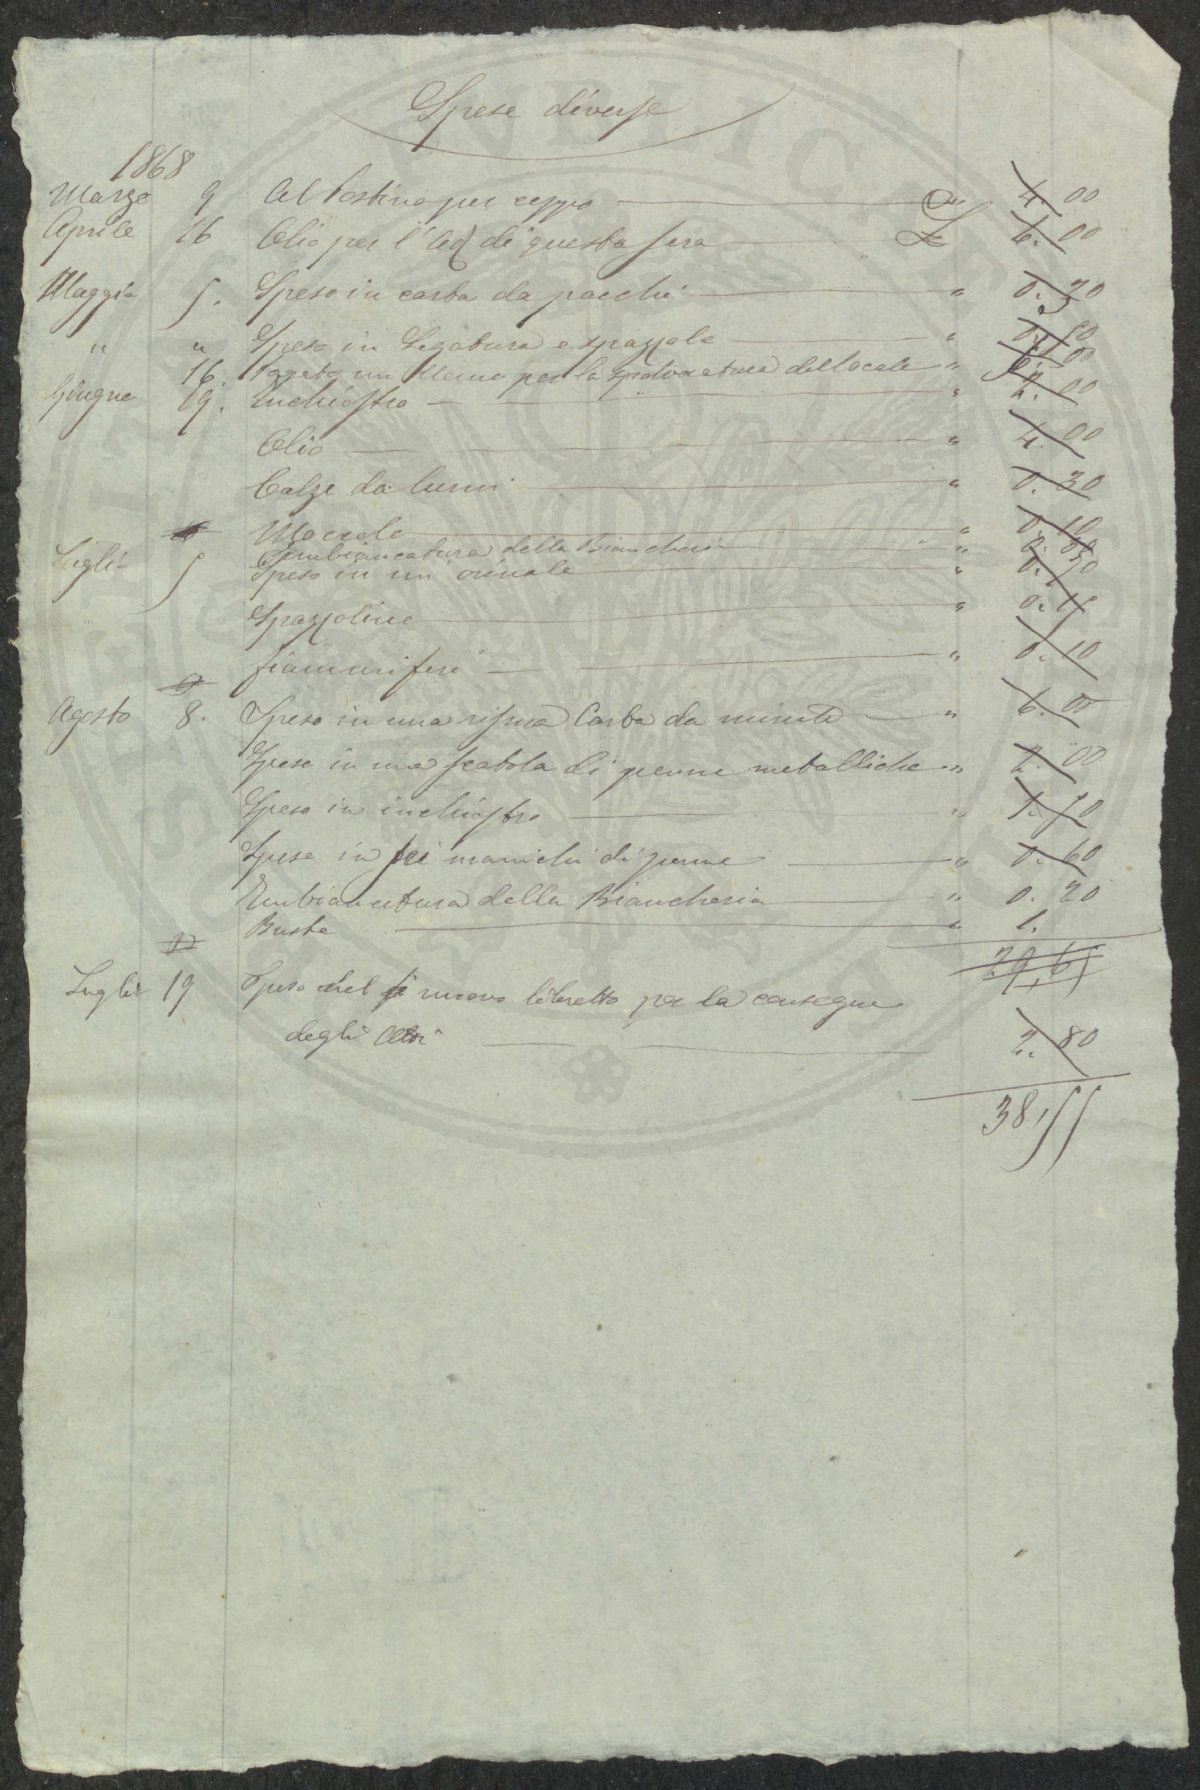 Spese diverse
1868
Marzo 9 Al Postino per ceppo " 4. 00
Aprile 16 Olio per l'Ad di questa sera £ 6. 00
Maggio 5. Speso in carta da pacchi " 0. 20
" " Speso in Legatura e spazzole " 0. 50
16. Pagato un uomo per la spolveratura del locale " 6. 00
Giugno 19. Inchiostro " 2. 00
Olio " 4. 00
Calze da lumi " 0. 30
Moccolo " 0. 10
Imbiancatura della Biancheria "
Luglio 5 Speso in un orinale " 0. 70
Spazzolino " 0. 15
fiammiferi " 0. 10
Agosto 8. Speso in una risma Carta da minute " 6. 00
Speso in una scatola di penne metalliche " 2. 00
Speso in inchiostro " 1. 70
Spese in sei manichi di penne " 0. 60
Imbiancatura della Biancheria " 0. 20
Buste " 1.
29,65
Luglio 19 Speso nel nuovo libretto per la consegna
degli Atti 2. 80
38,55